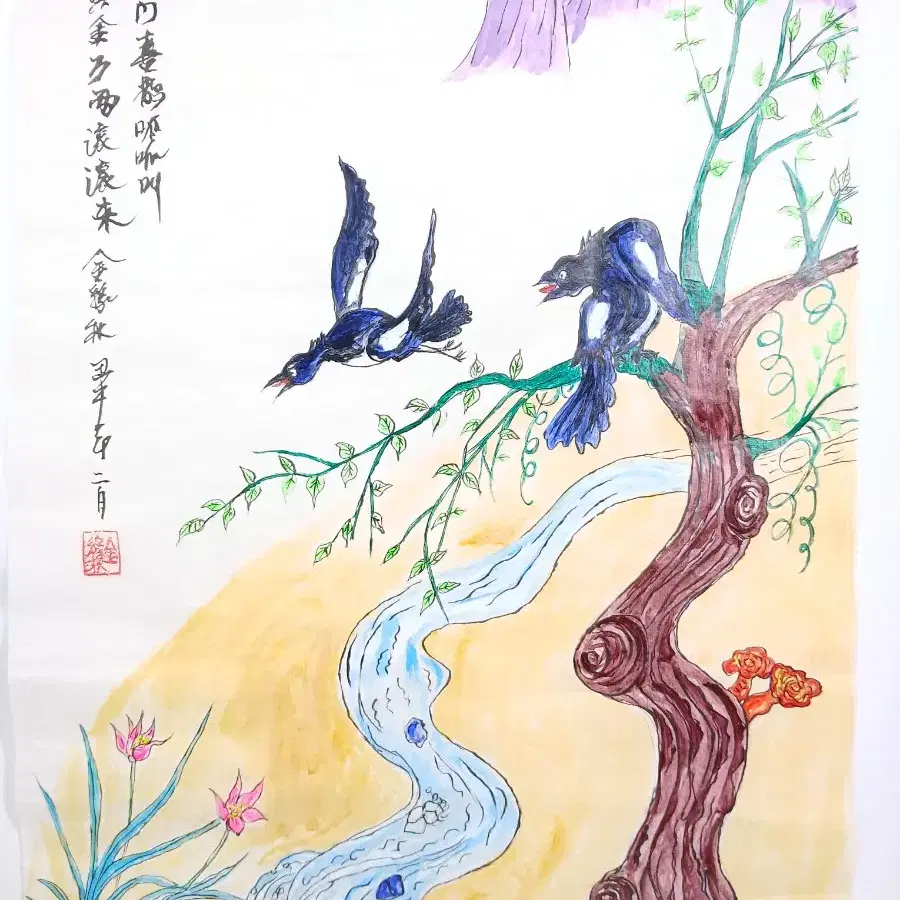 门喜鹊喳喳叫
金万两滚滚来 金 秋 丑辛年二月